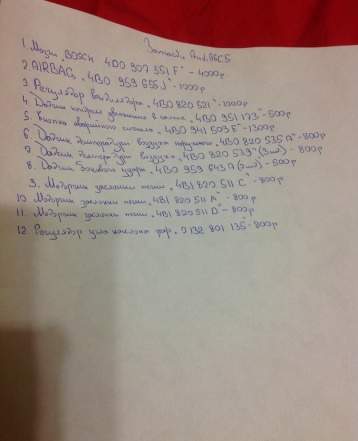 Запчасти Audi A6C5
1. Мозги BOSCH 4D0 907 551 F - 4000р
2. AIRBAG "4B0 959 655 J" - 1000р
3. Регулятор вентилятора "4B0 820 521" - 1000р
4. Датчик давления в салоне "4B0 951 173" - 500р
5. Кнопка аварийного сигнала "4B0 941 509 E" - 1300р
6. Датчик температуры воздуха "4B0 820 535 A" - 800р
7. Датчик температуры воздуха "4B0 820 539" (2шт) - 800р
8. Датчик бокового удара "4B0 959 643 A" (2шт) - 500р
9. Моторчик заслонки печки "4B1 820 511 C" - 800р
10. Моторчик заслонки печки "4B1 820 511 A" - 800р
11. Моторчик заслонки печки "4B1 820 511 D" - 800р
12. Регулятор угла наклона фар "0 132 801 135" - 800р